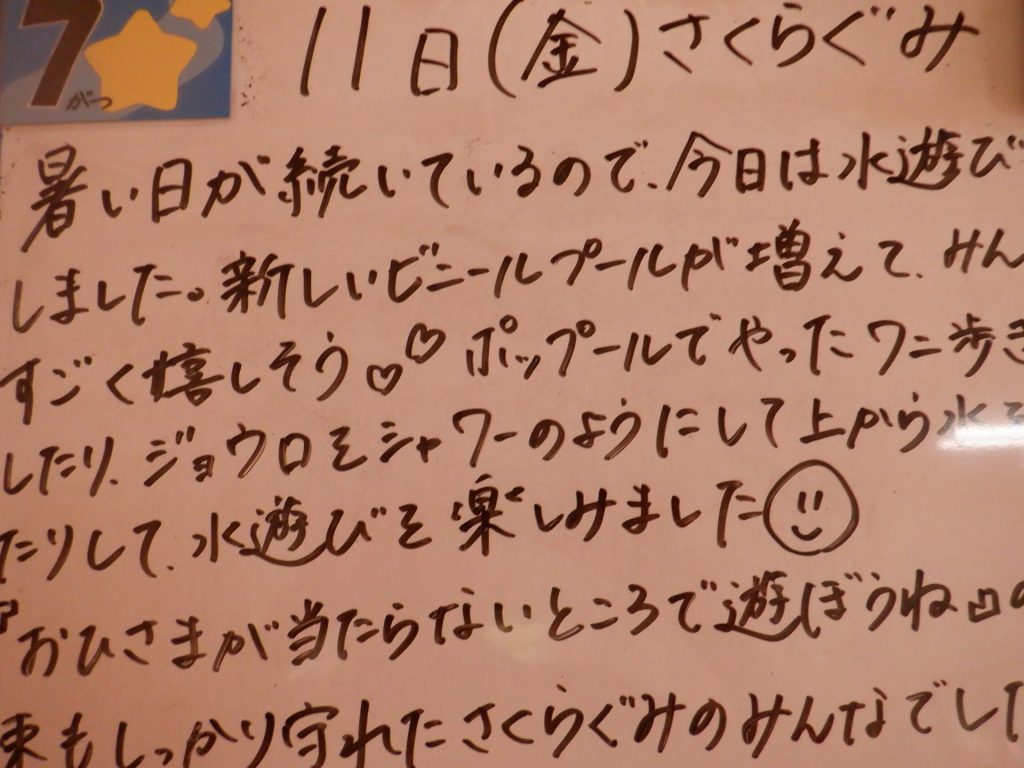 7
がつ
11日(金)さくらぐみ
暑い日が続いているので、今日は水遊び
しました。新しいビニールプールが増えて、みん
すごく嬉しそう♡♡ ポップールでやったワニ歩き
したり、ジョウロをシャワーのようにして上から水を
たりして、水遊びを楽しみました
『おひさまが当たらないところで遊ぼうね』の
束もしっかり守れたさくらぐみのみんなでした